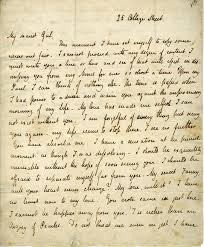 25 College Street.
My dearest Girl,
This moment I have set myself to copy some
verses out fair. I cannot proceed with any degree of content. I
must write you a line or two and see if that will assist in dis-
missing you from my Mind for ever so short a time. Upon my
Soul I can think of nothing else. The time is passed when
I had power to advise and warn you against the unpromising
morning of my Life. My love has made me selfish. I can
not exist without you. I am forgetful of every thing but seeing
you again my Life seems to stop there I see no further.
You have absorb'd me. I have a sensation at the present
moment as though I was dissolving I should be exquisitely
miserable without the hope of soon seeing you. I should be
afraid to separate myself far from you. My sweet Fanny,
will your heart never change? My love will it? I have
no limit now to my love
Your note came in just here
I cannot be happier away from you 'T is richer than an
Argosy of Pearles. Do not threat me even in jest. I have